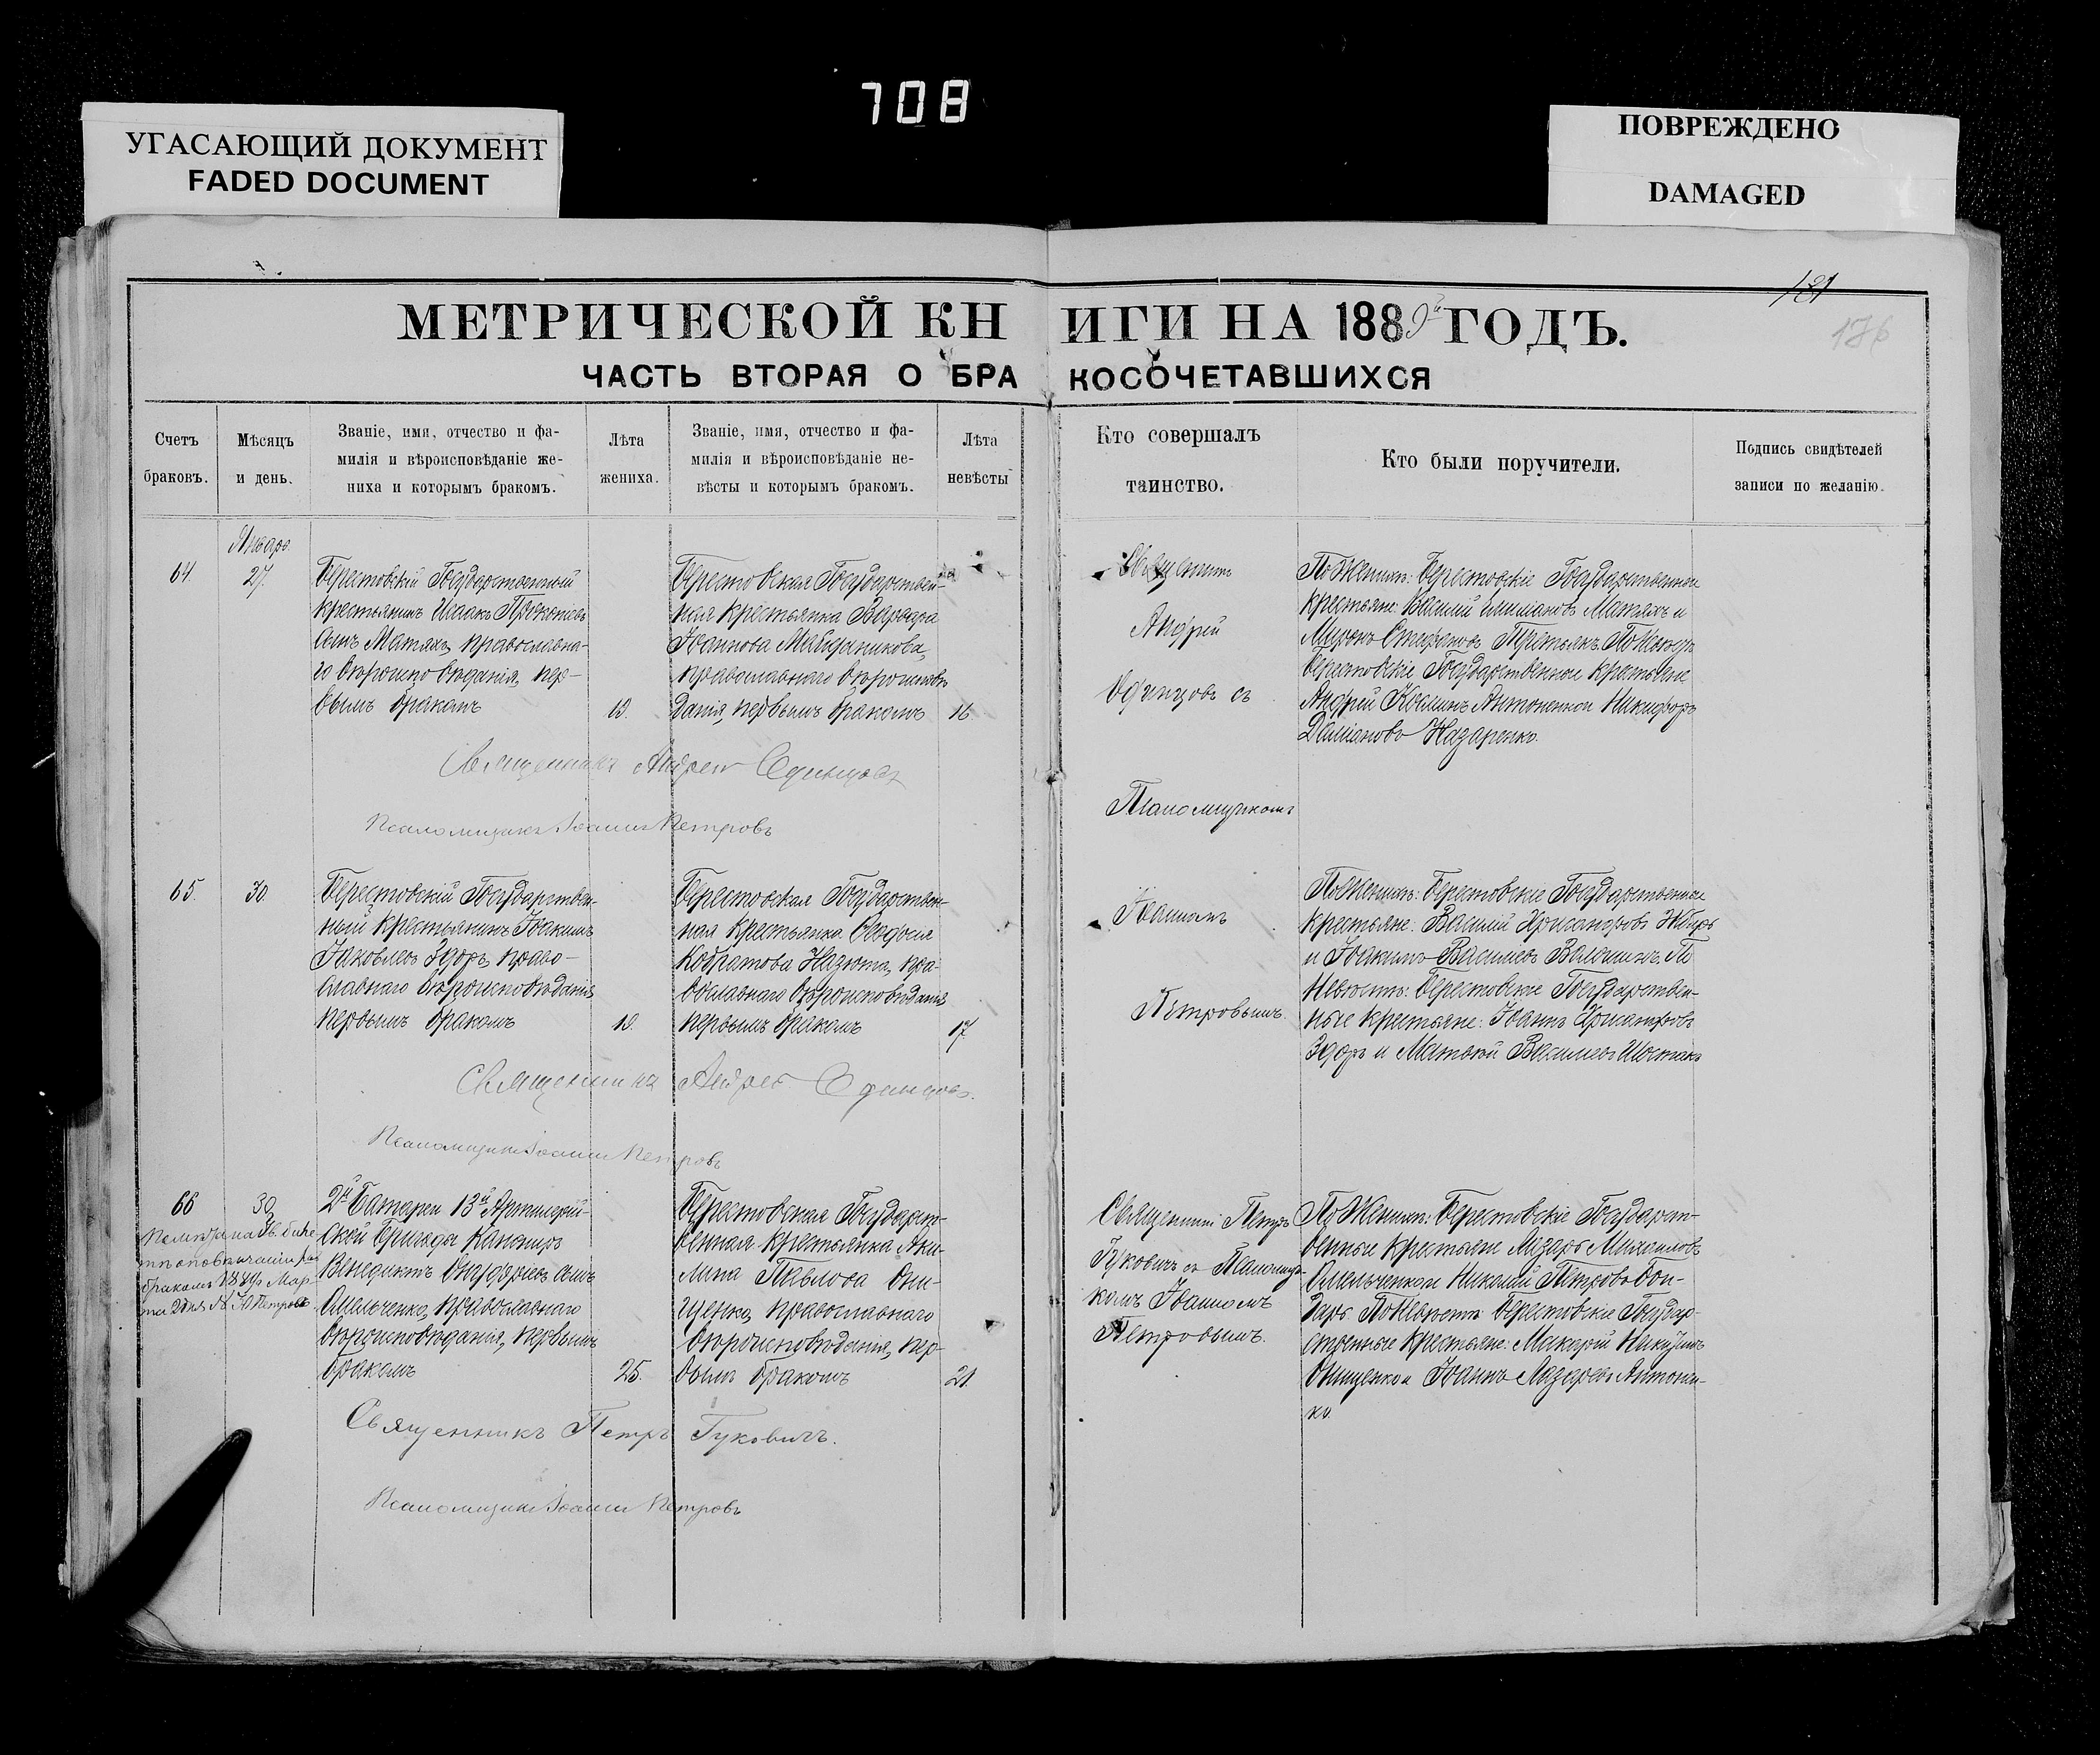 708
УГАСАЮЩИЙ ДОКУМЕНТ
FADED DOCUMENT
ПОВРЕЖДЕНО
DAMAGED
121
176
МЕТРИЧЕСКОЙ КНИГИ НА 1889й ГОДЪ.
ЧАСТЬ ВТОРАЯ О БРАКОСОЧЕТАВШИХСЯ
Счетъ
браковъ.
Мѣсяцъ
и день.
Званіе, имя, отчество и фа-
милія и вѣроисповѣданіе же-
ниха и которымъ бракомъ.
Лѣта
жениха.
Званіе, имя, отчество и фа-
милія и вѣроисповѣданіе не-
вѣсты и которымъ бракомъ.
Лѣта
невѣсты
Кто совершалъ
таинство.
Кто были поручители.
Подпись свидѣтелей
записи по желанію.
64
Январь
27.
Берестовскій Государственный
крестьянинъ Исаакъ Прокопіевъ
сынъ Матяхъ, православна-
го вѣроисповѣданія, пер-
вымъ бракомъ
Берестовская Государствен-
ная крестьянка Варвара
Іоаннова Майданикова,
православнаго вѣроисповѣ-
данія, первымъ бракомъ
16
Священникъ
Андрей
Одинцовъ съ
Псаломщикомъ
Іоанномъ
Петровымъ.
По Женихѣ: Берестовскіе Государственные
крестьяне: Василій Емиліановъ Матяхъ и
Миронъ Стефановъ Третьякъ. По Невѣстѣ:
Берестовскіе Государственные крестьяне
Андрей Косминъ Антоненко и Никифоръ
Даміановъ Назаренко.
Священникъ Андрей Одинцовъ
Псаломщикъ Іоаннъ Петровъ
65.
30.
Берестовскій Государствен-
ный крестьянинъ Іоакимъ
Іаковлевъ Здоръ, право-
славнаго вѣроисповѣданія,
первымъ бракомъ
Берестовская Государствен-
ная крестьянка Ѳеодосія
Кодратова Назюта, пра-
вославнаго вѣроисповѣданія
первымъ бракомъ
17.
По Женихѣ: Берестовскіе Государственные
крестьяне: Василій Хрисанфовъ
и Іоакимъ Василіевъ Волошинъ. По
Невѣстѣ: Берестовскіе Государствен-
ные крестьяне: Іоаннъ Хрисанфовъ
Здоръ и Матвѣй Василіевъ Шостакъ
Священникъ Андрей Одинцовъ.
Псаломщикъ Іоаннъ Петровъ
66
30
2й Батареи 13й Артиллерій-
ской Бригады Канониръ
Венедиктъ Онуфріевъ сынъ
Омельченко, православнаго
вѣроисповѣданія, первымъ
бракомъ
25.
Берестовская Государст-
венная крестьянка Аки-
лина Павлова Они-
щенко, православнаго
вѣроисповѣданія, пер-
вымъ бракомъ
21.
Священникъ Петръ
Гуковичъ съ Псаломщи-
комъ Іоанномъ
Петровымъ.
По Женихѣ: Берестовскіе Государст-
венные крестьяне Лазарь Михаиловъ
Омельченко и Николай Петровъ Бон-
дарь. По Невѣстѣ: Берестовскіе Государ-
ственные крестьяне: Макарій
Онищенко и Іоаннъ Лазаревъ Антонен-
ко.
Священникъ Петръ Гуковичъ.
Псаломщикъ Іоаннъ Петровъ